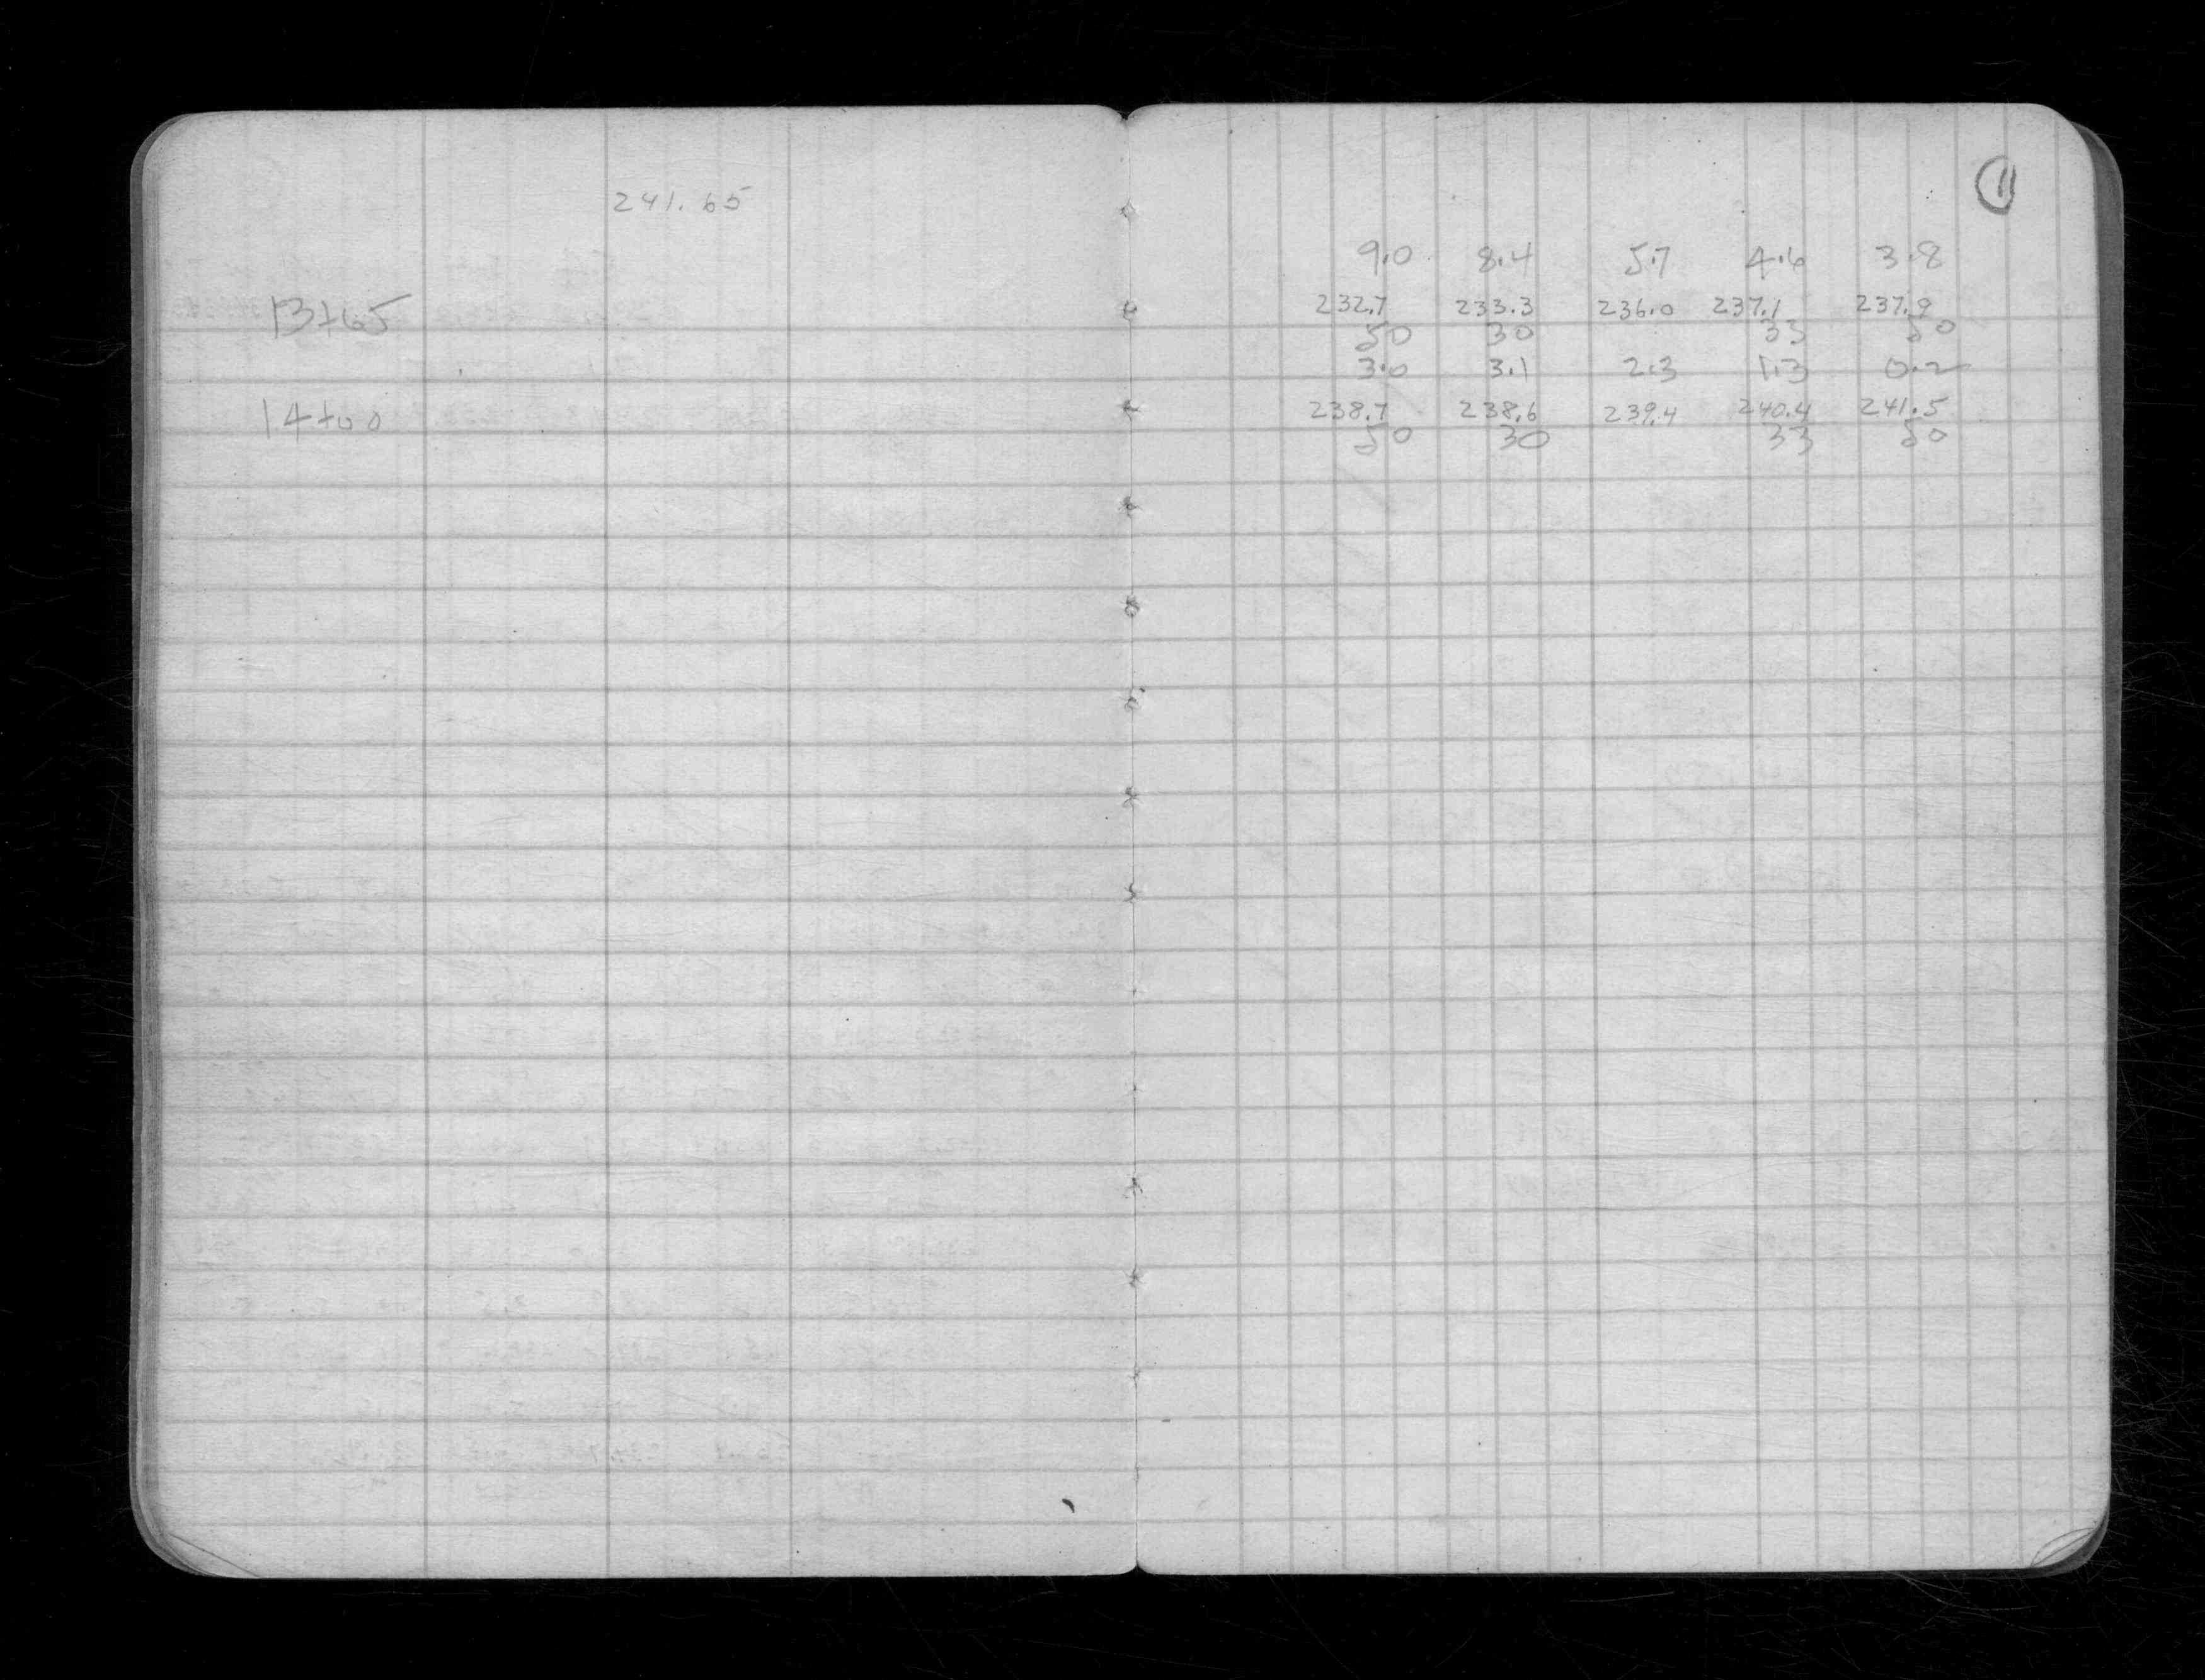 241.65
13+65
14+00
11
9.0 8.4 5.7 4.6 3.8
232.7 233.3 236.0 237.1 237.9
50 30 33 50
3.0 3.1 2.3 1.3 0.2
238.7 238.6 239.4 240.4 241.5
50 30 33 50